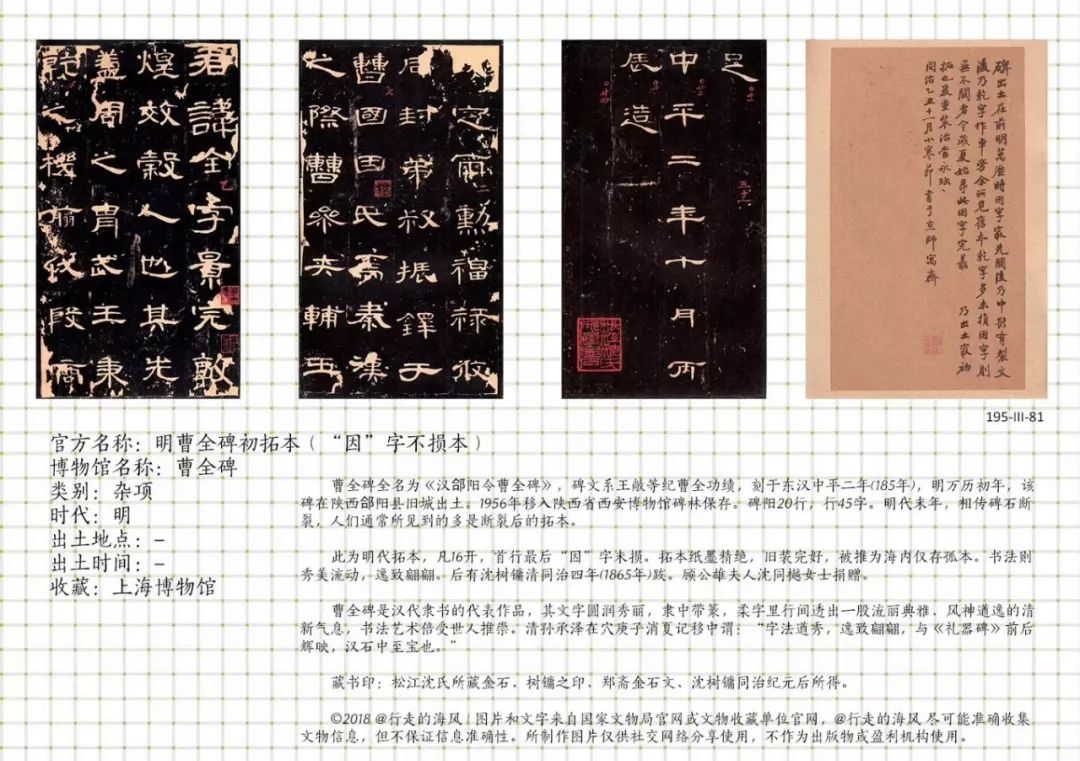 君諱全字景完敦
煌效穀人也其先
蓋周之胄武王秉
乾之機翦伐殷商
定爾勳福祿攸
同封弟叔振鐸于
曹國因氏焉秦漢
之際曹參夾輔王
足
中平二年十月丙
辰造
碑出土在前明萬歷時因字最先闕後乃中斷有裂文
後乃乾字作車旁余所見舊本乾字多未損因字則
無不闕者今歲夏始尋此因字完善 乃出土最初
拓也亟重裝治當永珤
同治乙丑十一月小寒節書于京師寓齋
195-III-81
官方名称：明曹全碑初拓本（“因”字不损本）
博物馆名称：曹全碑
类别：杂项
时代：明
出土地点：-
出土时间：-
收藏：上海博物馆
曹全碑全名为《汉郃阳令曹全碑》，碑文系王敞等纪曹全功绩，刻于东汉中平二年(185年)，明万历初年，该
碑在陕西郃阳县旧城出土。1956年移入陕西省西安博物馆碑林保存。碑阳20行，行45字。明代末年，相传碑石断
裂，人们通常所见到的多是断裂后的拓本。
此为明代拓本，凡16开，首行最后“因”字未损。拓本纸墨精绝，旧装完好，被推为海内仅存孤本。书法则
秀美流动，逸致翩翩。后有沈树镛清同治四年(1865年)跋。顾公雄夫人沈同樾女士捐赠。
曹全碑是汉代隶书的代表作品，其文字圆润秀丽，隶中带篆，柔字里行间透出一股流丽典雅、风神遒逸的清
新气息，书法艺术倍受世人推崇。清孙承泽在穴庚子消夏记移中谓：“字法遒秀，逸致翩翩，与《礼器碑》前后
辉映，汉石中至宝也。”
藏书印：松江沈氏所藏金石、树镛之印、郑斋金石文、沈树镛同治纪元后所得。
©2018 @行走的海风 | 图片和文字来自国家文物局官网或文物收藏单位官网，@行走的海风 尽可能准确收集
文物信息，但不保证信息准确性。所制作图片仅供社交网络分享使用，不作为出版物或盈利机构使用。